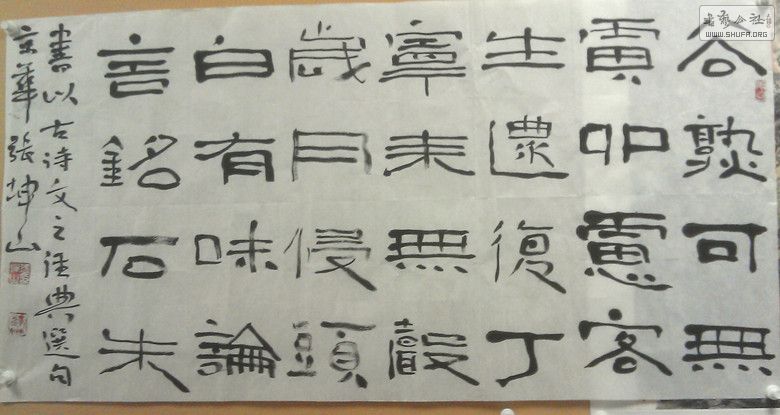 谷熟可無
寅卯憲客
生復丁
寧耒無
歲月侵頭
白有味論
言銘石朱
書以古诗文之经典選句
京華張坤山
書法公社
WWW.SHUFA.ORG